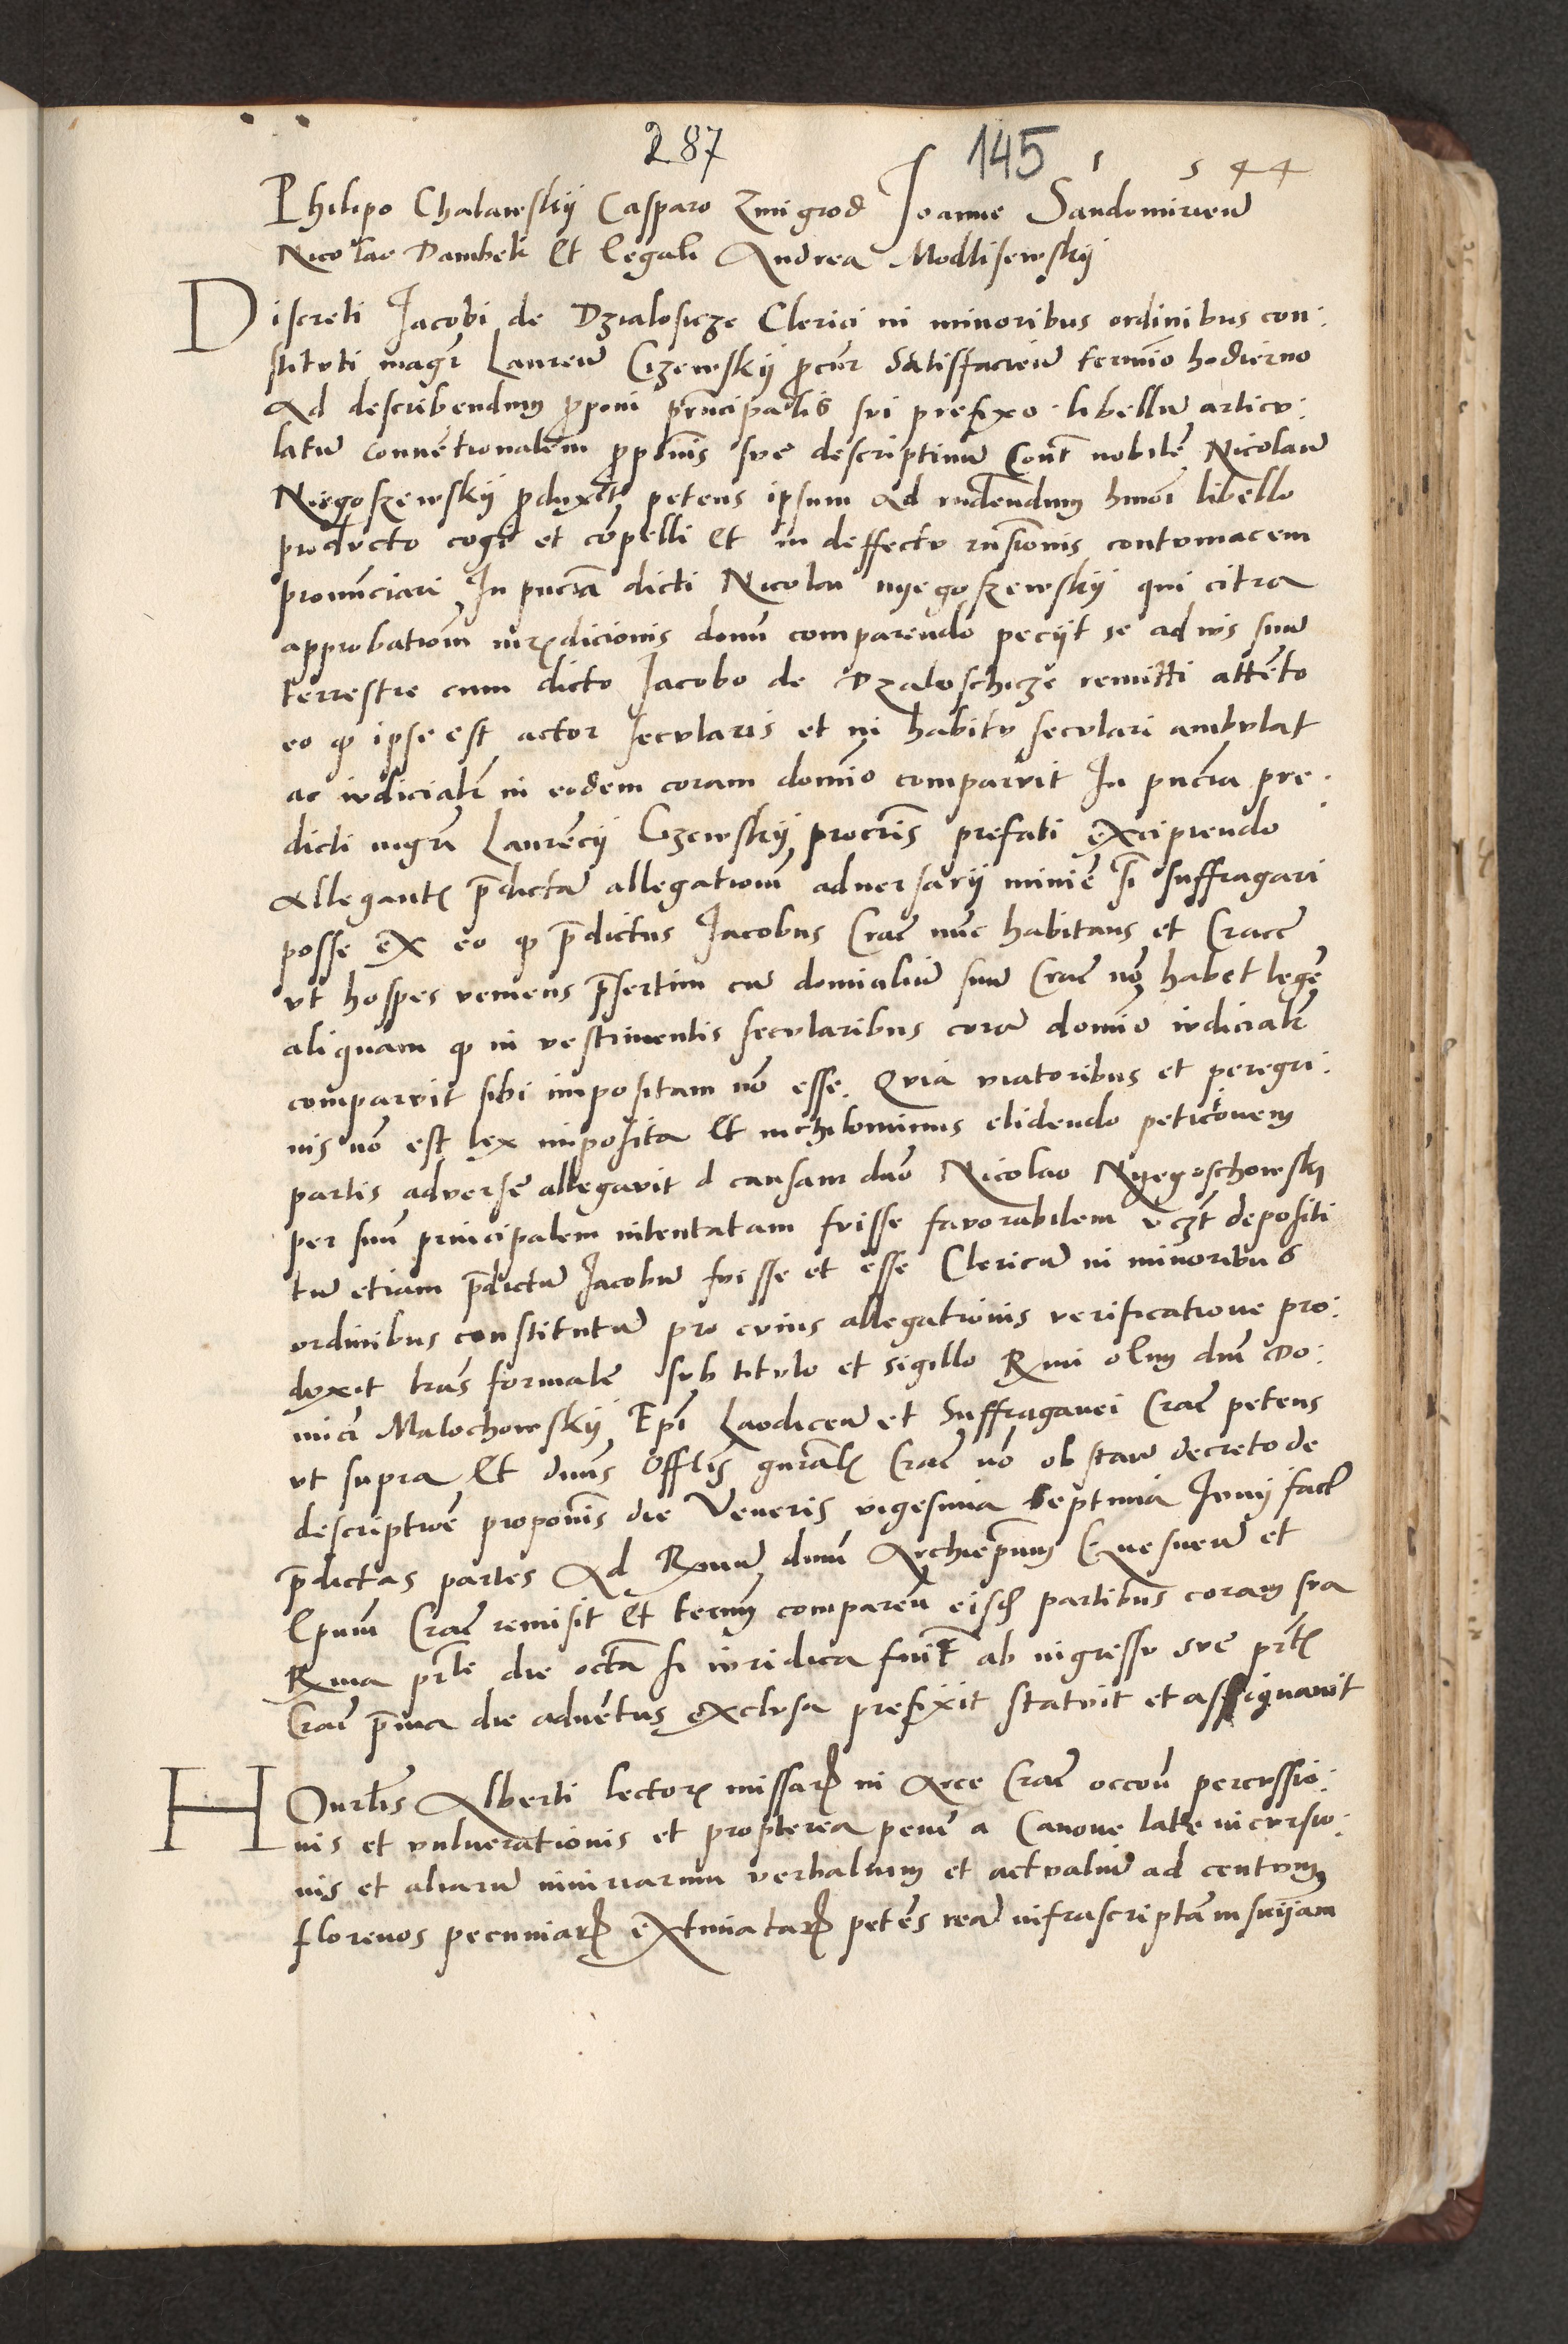 287 145 1 5 4 4
Philipo Chalawskij Casparo Zmigrod Joanne Sandomirien̄
Nicolao Dambek Et legali Andrea Modlisewskij
Discreti Jacobi de Dzialosicze Clerici in minoribus ordinibus con:
stituti magr̄ Lauren̄ Czewskij ꝓcur̄ Satisfacien̄ termīo hodierno
Ad describendum ꝓponi prīncipalis sui prefixo libellū articu:
latum Conuētionalem ꝓpōnis sue descriptiuū Cont̄ nobilē Nicolaū
Niegoszewskij ꝓduxit petens ipsum Ad rn̄dendum hmōi libello
producto cogi et cōpelli Et in deffectu rn̄sionis contumacem
pronūnciari In pn̄cia dicti Nicolai nyegoszewskij qui citra
approbationem iurꝫdicionis domī comparendo pecijt se ad ius suū
terrestre cum dicto Jacobo de Dzaloschicze remitti attēto
eo ꝙ ipse est actor secularis et in habitu seculari ambulat
ac iudicialr̄ in eodem coram domīo comparuit In pn̄cia pre:
dicti mgrī Laurēcij Czewskij procrīs prefati excipiendo
Allegantꝭ p̄dictam allegationem aduersarij minīe sī suffragari
posse ex eo ꝙ p̄dictus Jacobus Crac̄ nūc habitans et Crac̄
ut hospes veniens p̄sertim cū domicilium suū Crac̄ nō habet legē
aliquam ꝙ in vestimentis secularibus corā domīo iudicialr̄
comparuit sibi impositam nō esse. Quia viatoribus et peregri:
nis nō est lex imposita Et nichilominus elidendo peticōnem
partis aduerse allegauit d causam dnō Nicolao Nyegoschowskj
per suū principalem intentatam fuisse fauorabilem vꝫt depositi
tū etiam p̄dictū Jacobū fuisse et esse Clericū in minoribus
ordinibus constitutū pro cuius allegationis verificatione pro:
duxit lr̄as formatē sub titulo et sigillo Rmi olim dnī Do:
minici Malochowskij Epī Laodicen̄ et Suffraganei Crac̄ petens
ut supra Et dnūs Offlīs gnrālꝭ Crac̄ nō obstan̄ decreto de
descriptiōe proponīs die Veneris vigesima septima Junij fact̄
p̄dictas partes Ad Rmum dnū Archiep̄um Gnesnen̄ et
Epum Crac̄ remisit Et termī comparen̄ eisd̄ partibus coram sua
Rma prt̄e die octā si iuridica fuit̄ ab ingressu sue prt̄ꝭ
Crac̄ p̄ma die aduētus exclusa prefixit statuit et assignauit
Honrlīs Alberti lectorꝭ missarꝝ in Arce Crac̄ occon̄ percussio:
nis et vulnerationis et propterea penē a Canone late incursio:
nis et aliarū iniuriarum verbalium et actualiū ad centum
florenos pecuniarꝝ extimatarꝝ petēs reā infrascriptam suijam